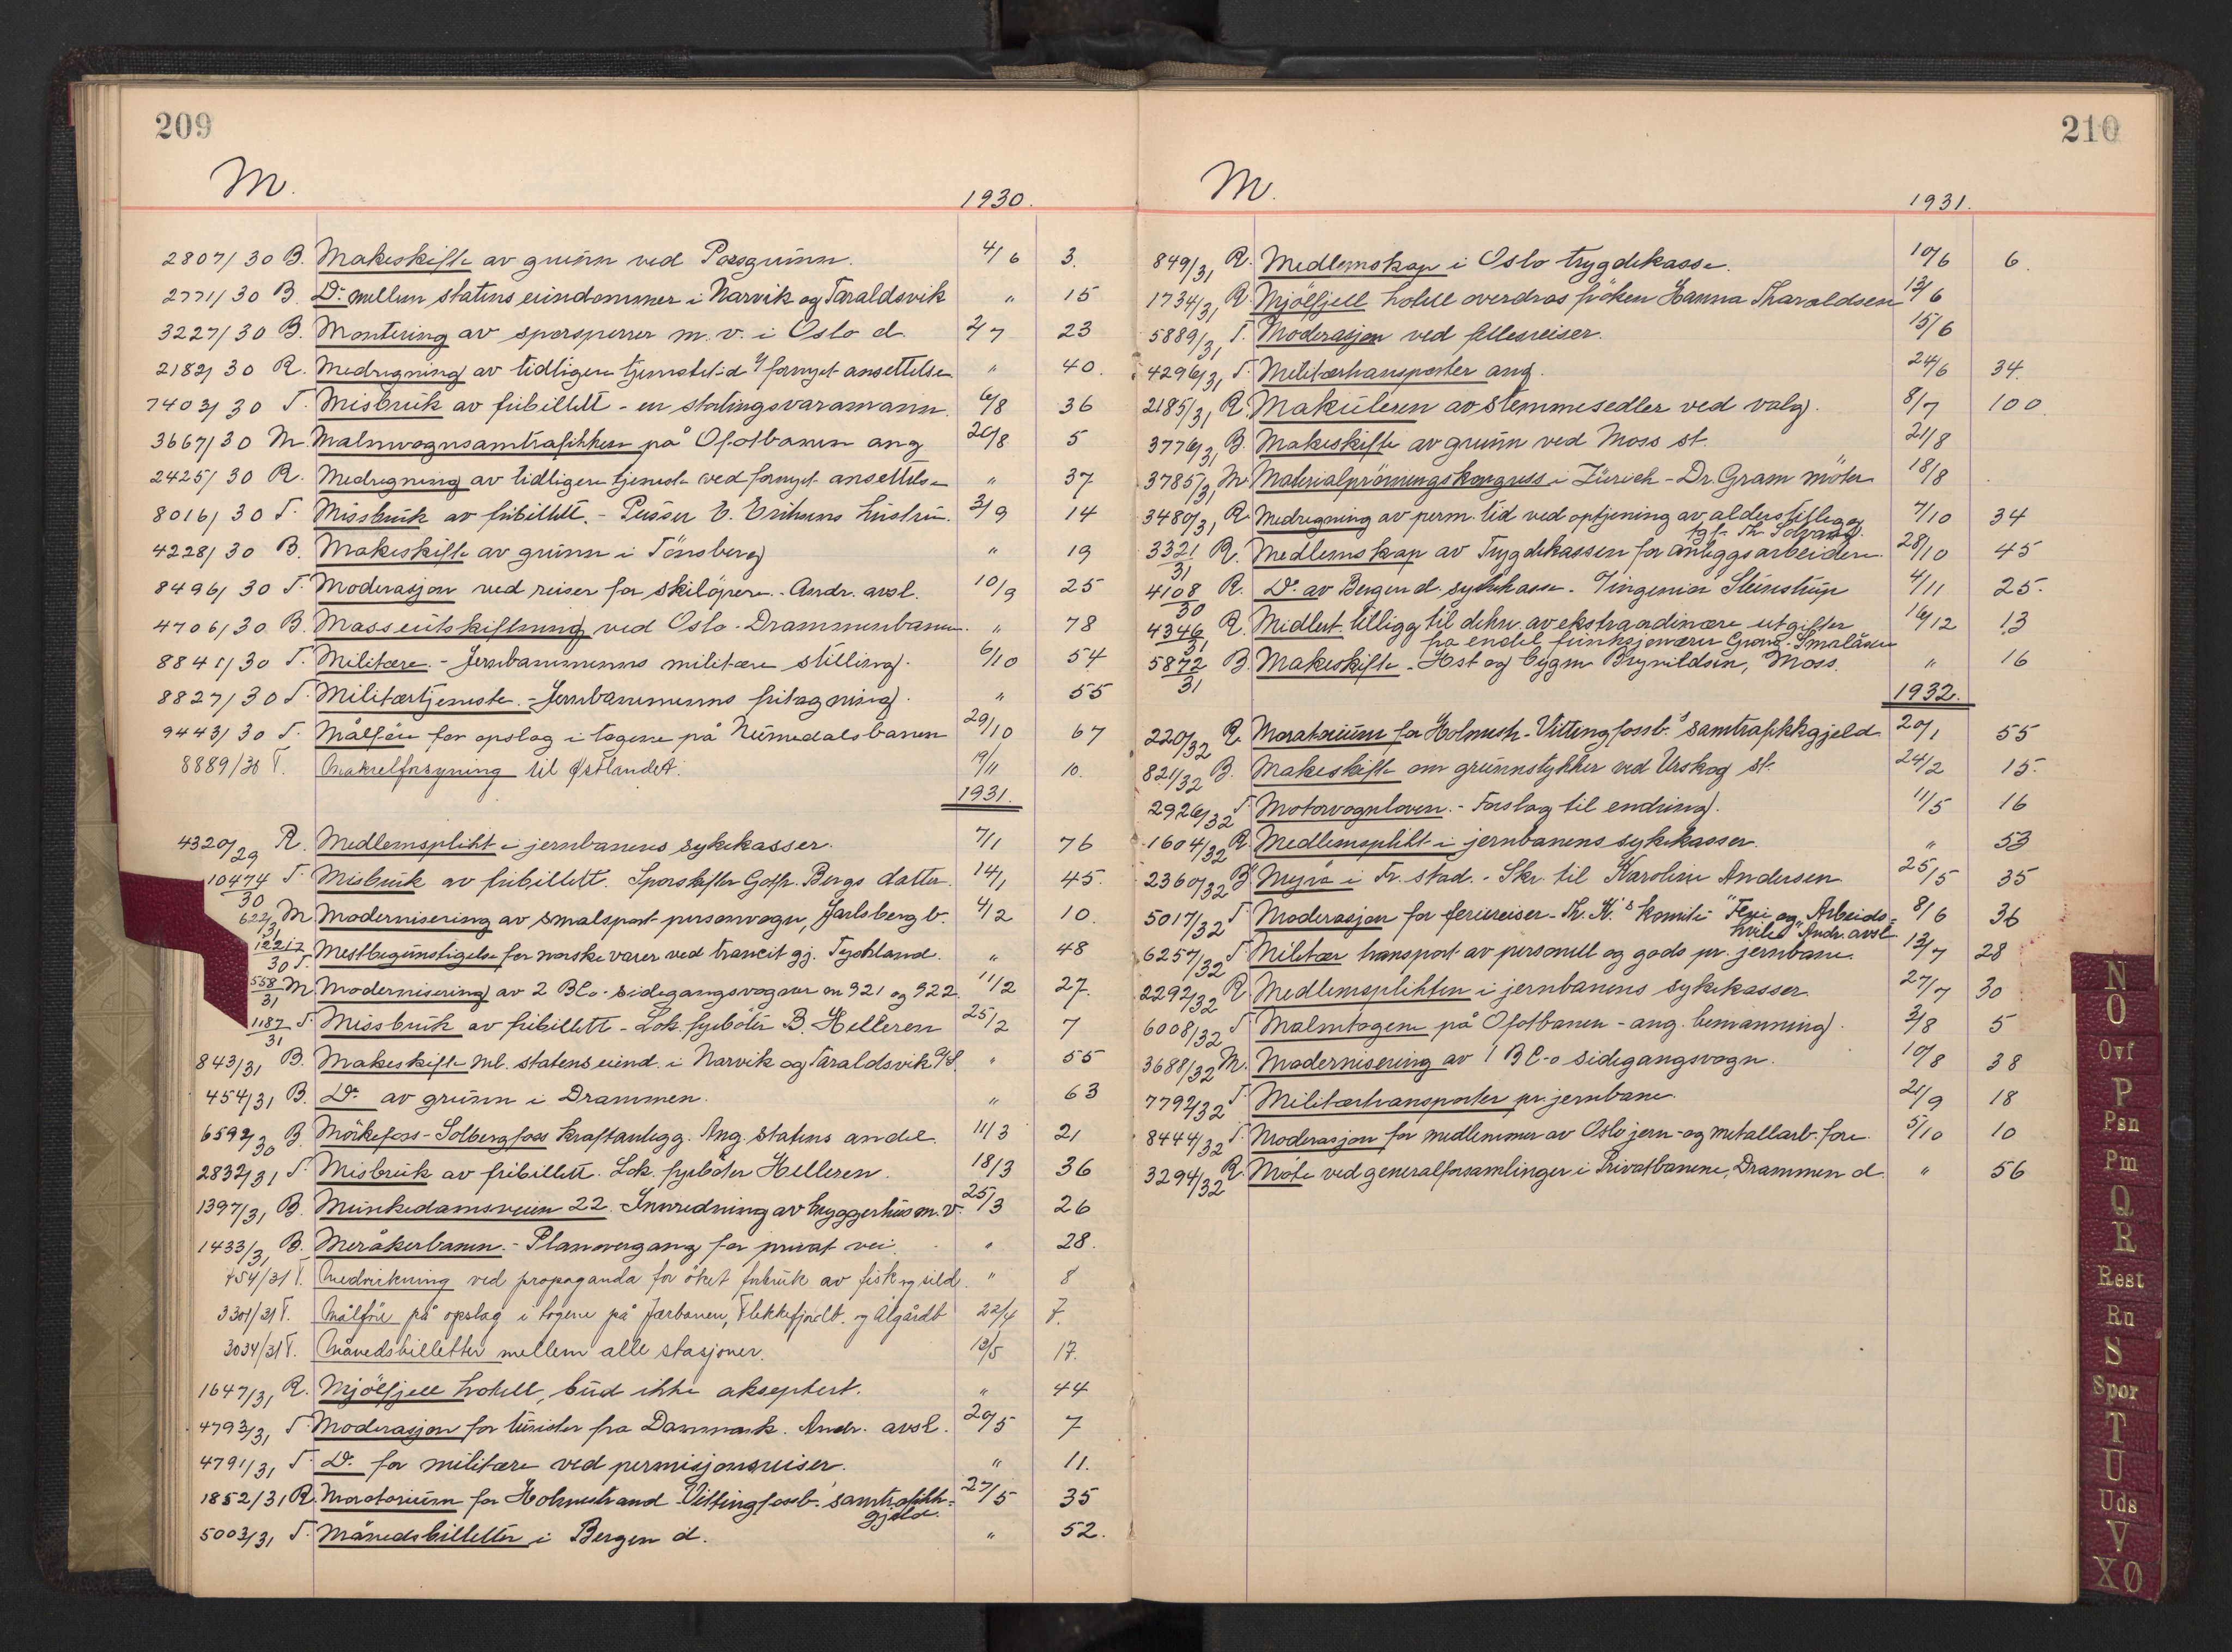 209
M.
1930.
2807/30 B. Makeskifte av grunn ved Porsgrunn. 4/6 3.
2771/30 B. Do mellem statens eiendommer i Narvik og Taraldsvik " 15
3227/30 B. Montering av sporsperrer m.v. i Oslo d. 2/7 23
2182/30 R. Medregning av tidligere tjenestetid v/ fornyet ansettelse " 40.
7403/30 T. Misbruk av fribillett - en stortingsvaramann. 6/8 36
3667/30 M Malmvognsamtrafikken på Ofotbanen ang 20/8 5
2425/30 R. Medregning av tidligere tjeneste ved fornyet ansettelse " 37
8016/30 T. Missbruk av fribillett. - Pusser E. Eriksens hustru. 3/9 14
4228/30 B. Makeskifte av grunn i Tönsberg " 19
8496/30 T. Moderasjon ved reiser for skilöpere. - Andr. avsl. 10/9 25
4706/30 B. Masseutskiftning ved Oslo-Drammenbanen. " 78
8841/30 T. Militære. - Jernbanemenns militære stilling. 6/10 54
8827/30 T. Militærtjeneste. - Jernbanemenns fritagning. " 55
9443/30 T. Målföre for opslag i togene på Numedalsbanen 29/10 67
8889/30 T. Makrelforsyning til Østlandet. 19/11 10.
1931.
4320/29 R. Medlemsplikt i jernbanens sykekasser. 7/1 76
10474/30 T. Misbruk av fribillett. Sporskifter Gotfr. Bergs datter. 14/1 45.
622/31 M Modernisering av smalsport personvogn, Jarlsberg b. 4/2 10.
12217/30 T. Mestbegunstigelse for norske varer ved transit gj. Tyskland. " 48
558/31 M Modernisering av 2 BCo-sidegangsvogner nr 921 og 922. 11/2 27.
1187/31 T. Missbruk av fribillett - Lok. fyrböter B. Helleren 25/2 7
843/31 B. Makeskifte ml. statens eiend. i Narvik og Taraldsvik A/S. " 55
454/31 B. Do av grunn i Drammen. " 63
6592/30 B. Mörkefoss-Solbergfoss kraftanlegg. Ang. statens andel 11/3 21
2832/31 T. Misbruk av fribillett. Lok. fyrböter Helleren. 18/3 36
1397/31 B. Munkedamsveien 22. Innredning av bryggerhus m.v. 25/3 26
1433/31 B. Meråkerbanen. - Planovergang for privat vei. " 28.
454/31 T. Medvirkning ved propaganda for öket forbruk av fisk og sild. " 8
3301/31 T. Målföre på opslag i togene på Jærbanen, Flekkefjordb. og Ålgårdb 22/4 7.
3034/31 T. Månedsbilletter mellem alle stasjoner. 13/5 17.
1647/31 R. Mjölfjell hotell, bud ikke akseptert. " 44
4793/31 T Moderasjon for turister fra Danmark. Andr. avsl. 20/5 7
4791/31 T. Do for militære ved permisjonsreiser. " 11.
1852/31 R. Moratorium for Holmestrand-Vittingfossb.s samtrafikk- 27/5 35
gjeld.
5003/31 T. Månedsbilletter i Bergen d. " 52.
210
M.
1931.
849/31 R. Medlemskap i Oslo trygdekasse. 10/6 6.
1734/31 R. Mjölfjell hotell overdras fröken Hanna Tharaldsen 12/6
5889/31 T. Moderasjon ved fellesreiser. 15/6
4296/31 T. Militærtransporter ang. 24/6 34.
2185/31 R. Makuleren av stemmesedler ved valg. 8/7 100
3776/31 B. Makeskifte av grunn ved Moss st. 21/8
3785/31 M. Materialprövningskongress i Zürich - Dr. Gram möter 18/8
3480/31 R. Medregning av perm. tid ved optjening av alderstillegg 7/10 34
tgf. Th. Solvang.
3321/31 R. Medlemskap av Trygdekassen for anleggsarbeidere. 28/10 45
4108/30 R. Do av Bergen d. sykekasse. - Ingeniör Steinstrup 4/11 25.
4346/31 R. Midlert. tillegg til dekn. av ekstraordinære utgifter 16/12 13
fra endel funksjonærer Grong-Smalåsen
5872/31 B. Makeskifte - Höst og bygm Brynildsen, Moss. " 16
1932.
220/32 R. Moratorium for Holmestr.-Vittingfossb.s samtrafikkgjeld 20/1 55
821/32 B. Makeskifte om grunnstykker ved Urskog st. 24/2 15.
2926/32 T Motorvognloven. - Forslag til endring. 11/5 16
1604/32 R. Medlemsplikt i jernbanens sykekasser. " 53
2360/32 B Myra i Fr. stad. - Skr. til Karoline Andersen 25/5 35
5017/32 T Moderasjon for feriereiser - Th. K.'s komité "Ferie og Arbeids- 8/6 36
hvile" Andr. avsl.
6257/32 T Militær transport av personell og gods pr. jernbane. 13/7 28
2292/32 R Medlemsplikten i jernbanens sykekasser. 27/7 30
6008/32 T Malmtogene på Ofotbanen - ang. bemanning. 3/8 5
3688/32 M. Modernisering av 1 BC-o sidegangsvogn. 10/8 38
7792/32 T. Militærtransporter pr. jernbane. 21/9 18
8444/32 T. Moderasjon for medlemmer av Oslo jern- og metallarb. fore. 5/10 10
3294/32 R. Möte ved generalforsamlinger i Privatbanene, Drammen d. " 56
N
O
Ovf
P
Psn
Pm
Q
R
Rest
Ru
S
Spor
T
U
Uds
V
XØ